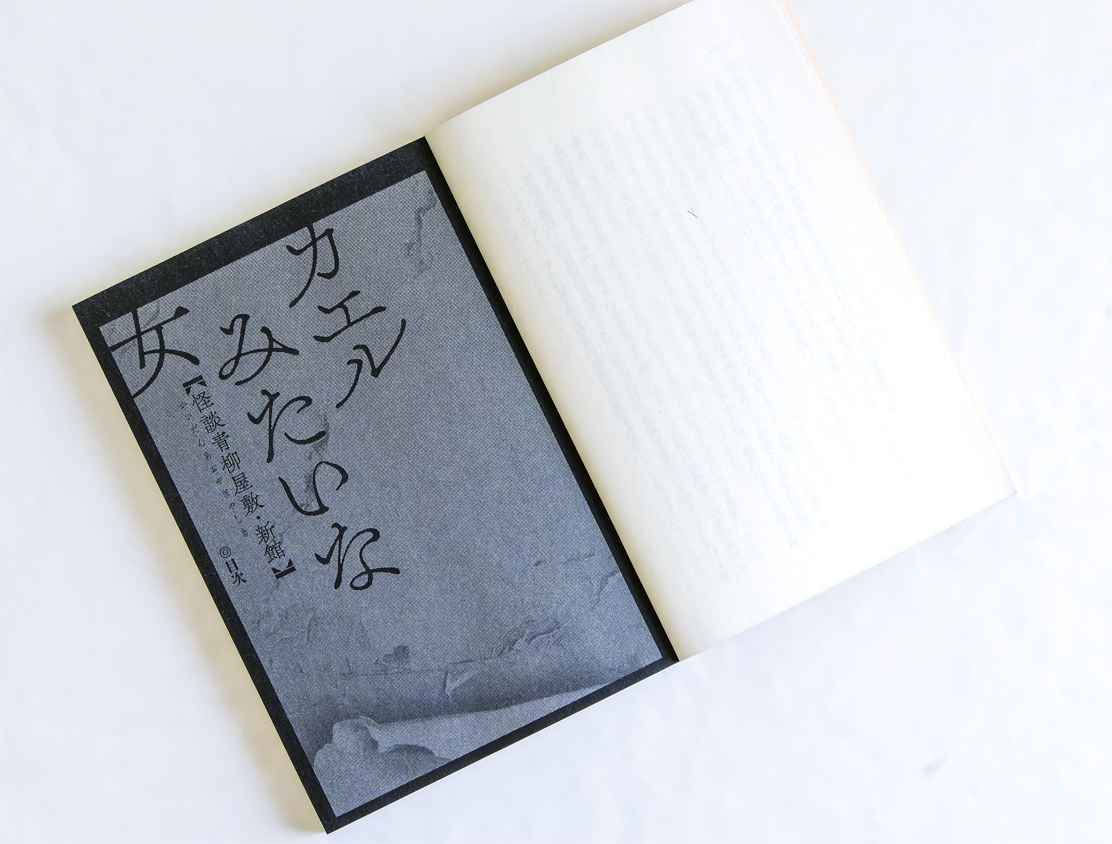 カエル
みたいな
女
【怪談青柳屋敷・新館】
かいだんあおやぎやしき
◎目次